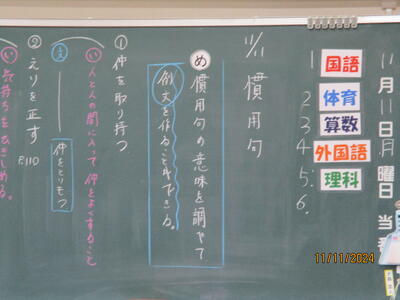 11月11日月曜日
1 国語
2. 体育
3. 算数
4. 外国語
5. 理科
6.
11/11 慣用句
め 慣用句の意味を調べて
例文を作ることができる。
① 仲を取り持つ
い 人と人の間に入って仲をよくすること
仲をとりもつ
② えりを正す P110
い 気持ちをひきしめる。
11/11/2024